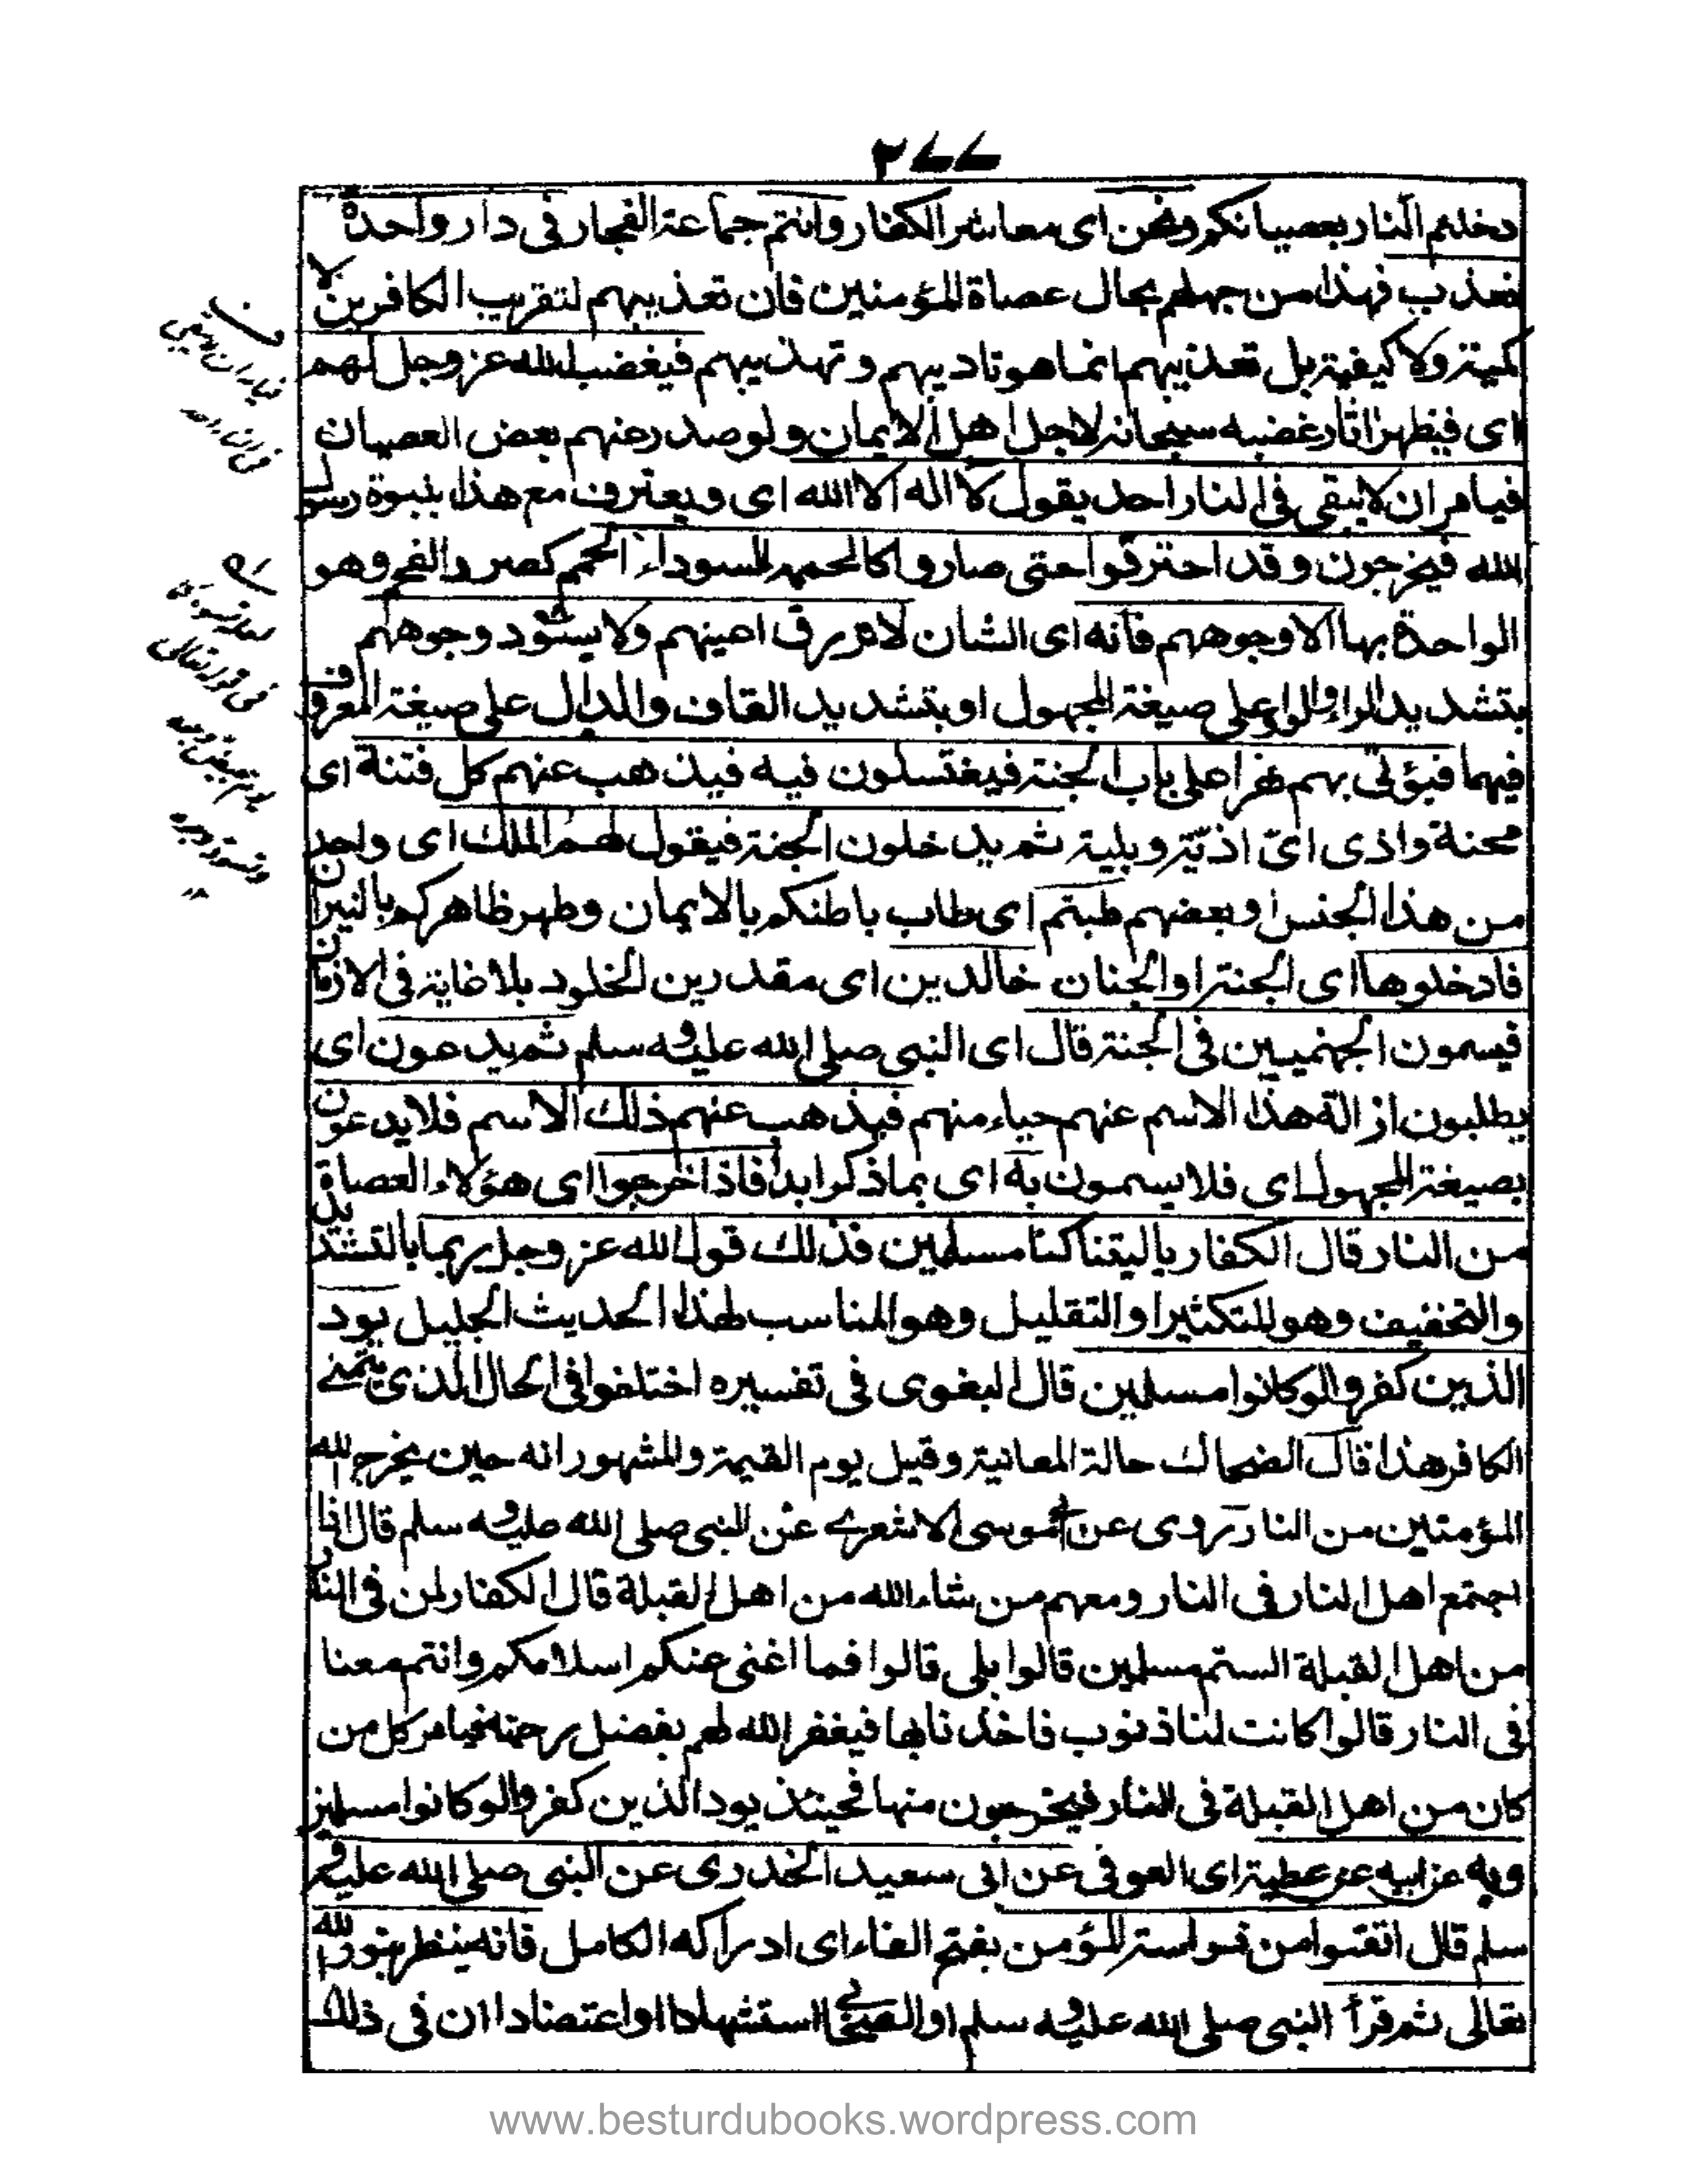 ٢٧٧
دخلتم النار بعصيانكم ونحن اى معاشر الكفار وانتم جماعة الفجار فى دار واحدة
نعذب فهذا من جهلهم بحال عصاة المؤمنين فان تعذيبهم لتقريب الكافرين لا
كمية ولا كيفية بل تعذيبهم انما هو تاديبهم وتهذيبهم فيغضب الله عز وجل لهم
اى فيظهر اثار غضبه سبحانه لاجل اهل الايمان ولو صدر عنهم بعض العصيان
فيامر ان لا يبقى فى النار احد يقول لا اله الا الله اى ويعترف مع هذا بنبوة رسول
الله فيخرجون وقد احترقوا حتى صاروا كالحممة السوداء الحمم كصرد الفحم وهو
الواحدة بها الا وجوههم فانه اى الشان لا تزرق اعينهم ولا يسود وجوههم
بتشديد الراء والواو على صيغة المجهول او بتشديد القاف والدال على صيغة المعروف
فيهما فيؤتى بهم نهرا على باب الجنة فيغتسلون فيه فيذهب عنهم كل فتنة اى
محنة واذى اى اذية وبلية ثم يدخلون الجنة فيقول لهم الملك اى واحد
من هذا الجنس او بعضهم طبتم اى طاب باطنكم بالايمان وطهر ظاهركم بالنيران
فادخلوها اى الجنة او الجنان خالدين اى مقدرين الخلود بلا غاية فى الازمان
فيسمون الجهنميين فى الجنة قال اى النبى صلى الله عليه وسلم ثم يدعون اى
يطلبون ازالة هذا الاسم عنهم حياء منهم فيذهب عنهم ذلك الاسم فلا يدعون
بصيغة المجهول اى فلا يسمون به اى بما ذكر ابدا فاذا خرجوا اى هؤلاء العصاة
من النار قال الكفار ياليتنا كنا مسلمين فذلك قول الله عز وجل ربما بالتشديد
والتخفيف وهو للتكثير او التقليل وهو المناسب لهذا الحديث الجليل يود
الذين كفروا لو كانوا مسلمين قال البغوى فى تفسيره اختلفوا فى الحال الذى يتمنى
الكافر هذا قال الضحاك حالة المعانية وقيل يوم القيمة والمشهور انه حين يخرج الله
المؤمنين من النار روى عن ابى موسى الاشعرى عن النبى صلى الله عليه وسلم قال اذا
اجتمع اهل النار فى النار ومعهم من شاء الله من اهل القبلة قال الكفار لمن فى النار
من اهل القبلة الستم مسلمين قالوا بلى قالوا فما اغنى عنكم اسلامكم وانتم معنا
فى النار قالوا كانت لنا ذنوب فاخذنا بها فيغفر الله لهم بفضل رحمته فيامر كل من
كان من اهل القبلة فى النار فيخرجون منها فحينئذ يود الذين كفروا لو كانوا مسلمين
وبه عن ابيه عن عطية اى العوفى عن ابى سعيد الخدرى عن النبى صلى الله عليه و
سلم قال اتقوا من فراسة المؤمن بفتح الفاء اى ادراكه الكامل فانه ينظر بنور الله
تعالى ثم قرأ النبى صلى الله عليه وسلم او الصحابى استشهادا او اعتضادا ان فى ذلك
www.besturdubooks.wordpress.com